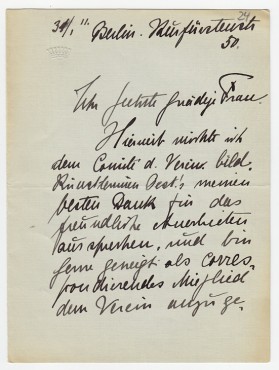 30/1 11 Berlin. Kurfürstenstr
50.
24
Sehr geehrte gnädige Frau.
Hiermit möchte ich
dem Comité d. Verein. bild.
Künstlerinnen Oest's, meinen
besten Dank für das
freundliche Anerbieten
aussprechen, und bin
gerne geneigt als corres-
pondierendes Mitglied
dem Verein anzuge-